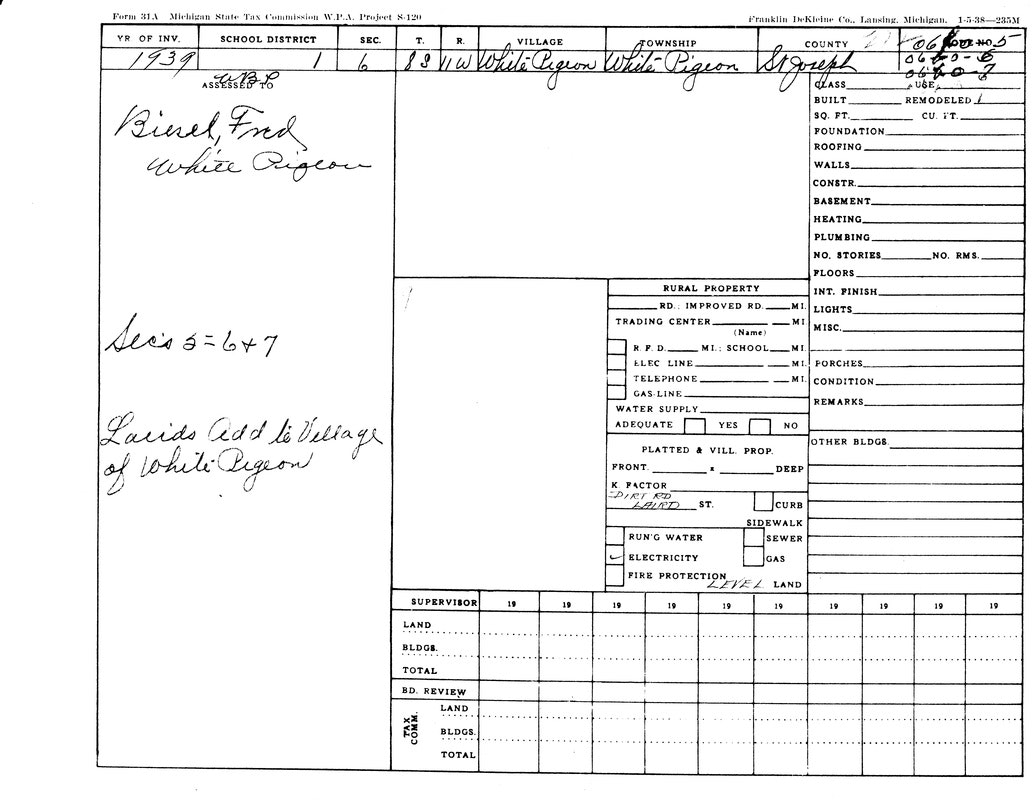 Form 31A Michigan State Tax Commission W.P.A. Project S-120
Franklin DeKleine Co., Lansing, Michigan. 1-5-38—235M
YR OF INV. SCHOOL DISTRICT SEC. T. R. VILLAGE TOWNSHIP COUNTY
1939 1 6 8S 11W White Pigeon White Pigeon St Joseph
ASSESSED TO
Biesel, Fred
White Pigeon
Sec's 5=6+7
Lairds Add to Village
of White Pigeon
CLASS USE
BUILT REMODELED
SQ. FT. CU. FT.
FOUNDATION
ROOFING
WALLS
CONSTR.
BASEMENT
HEATING
PLUMBING
NO. STORIES NO. RMS.
FLOORS
INT. FINISH
LIGHTS
MISC.
PORCHES
CONDITION
REMARKS
OTHER BLDGS.
RURAL PROPERTY
RD.; IMPROVED RD. MI.
TRADING CENTER MI.
(Name)
R. F. D. MI.; SCHOOL MI.
ELEC LINE MI.
TELEPHONE MI.
GAS-LINE
WATER SUPPLY
ADEQUATE YES NO
PLATTED & VILL. PROP.
FRONT. x DEEP
K FACTOR
DIRT RD
LAIRD ST. CURB
SIDEWALK
RUN'G WATER SEWER
ELECTRICITY GAS
FIRE PROTECTION
LEVEL LAND
SUPERVISOR 19 19 19 19 19 19 19 19 19 19
LAND
BLDGS.
TOTAL
BD. REVIEW
TAX COMM.
LAND
BLDGS.
TOTAL